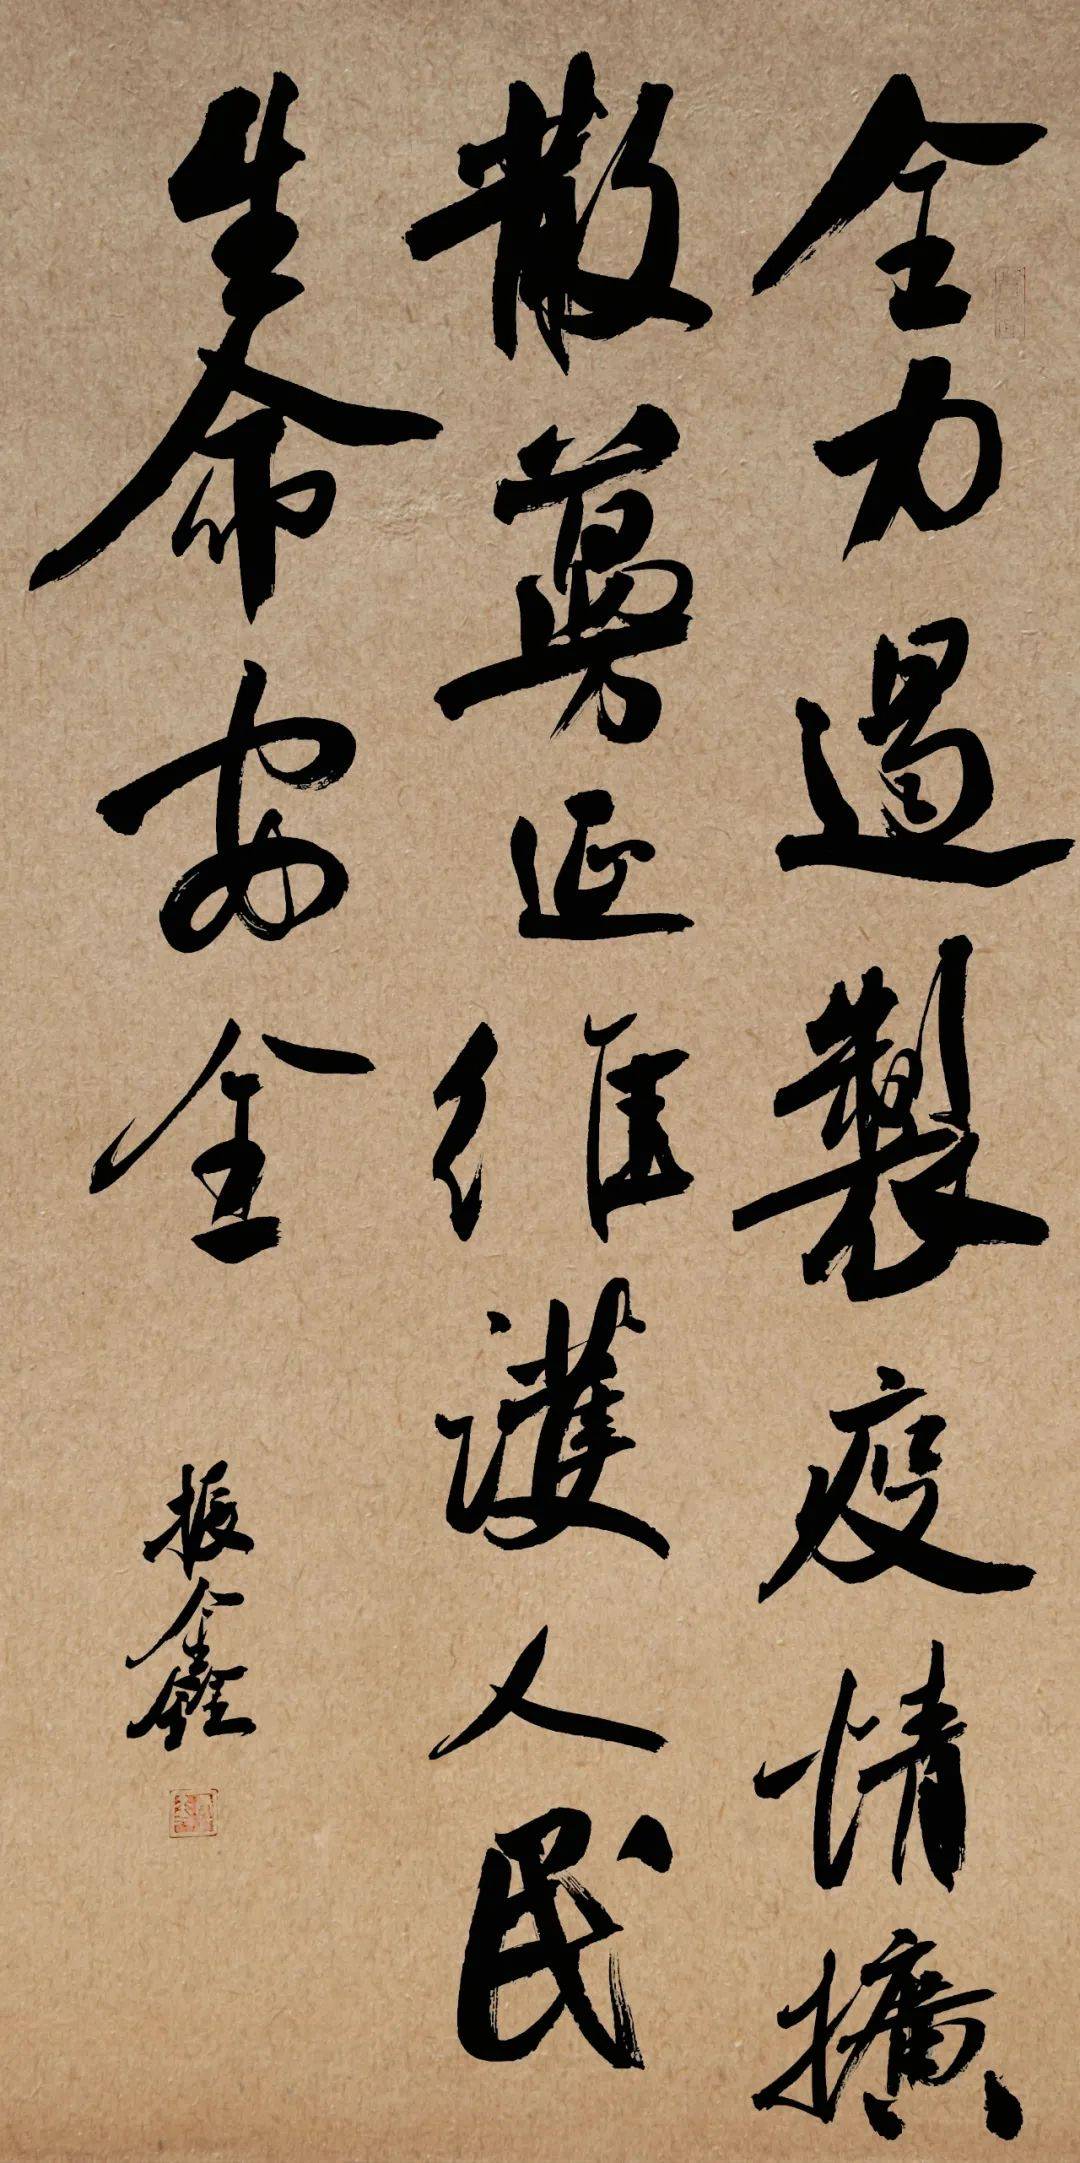 全力遏製疫情擴
散蔓延維護人民
生命安全
振鑫